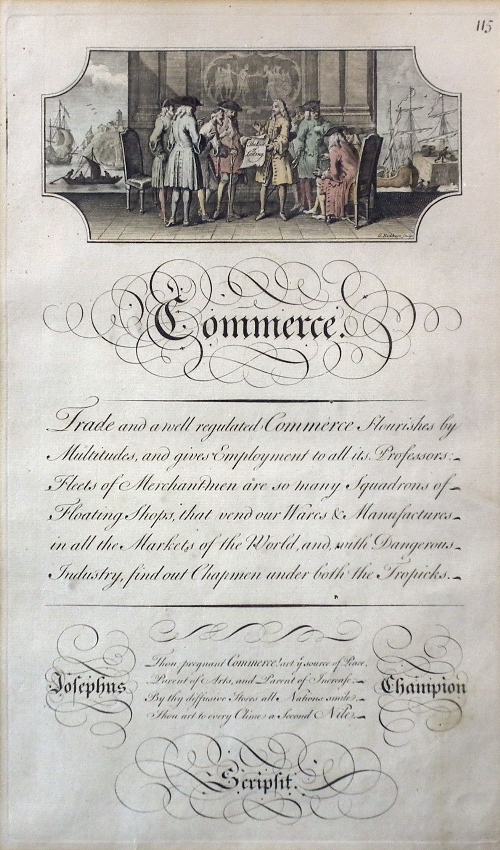 115
Bill of Lading
G. Bickham sculp.
Commerce.
Trade and a well regulated Commerce Flourishes by
Multitudes, and gives Employment to all its Professors:
Fleets of Merchantmen are so many Squadrons of
Floating Shops, that vend our Wares & Manufactures
in all the Markets of the World, and, with Dangerous
Industry, find out Chapmen under both the Tropicks.
Thou, pregnant Commerce! art yͤ source of Peace,
Parent of Arts, and Parent of Increase.
By thy diffusive Stores all Nations smile
Thou art to every Clime a Second Nile.
Josephus
Champion
Scripsit.